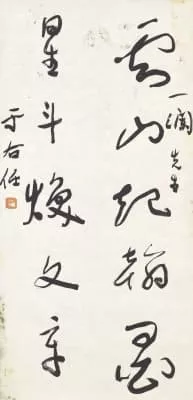 雲山起翰墨
一瀾先生
星斗煥文章
于右任